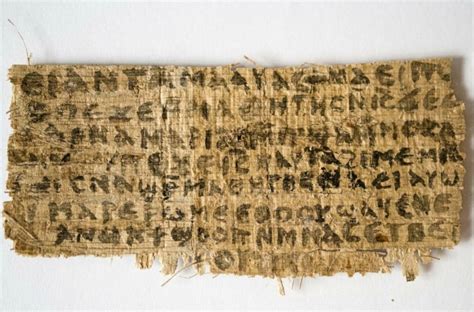 ⲉⲓ ⲁⲛ ⲧⲁⲙⲁⲁⲩ ⲁⲥϯ ⲛⲁⲉⲓ
ⲡⲉϫⲉ ⲙⲙⲁⲑⲏⲧⲏⲥ ⲛⲓⲥ ϫⲉ
ⲁⲣⲛⲁ ⲙⲁⲣⲓⲁⲙ ⲙⲡϣⲁ ⲙⲙⲟⲥ
ⲡⲉϫⲉ ⲓⲥ ⲛⲁⲩ ⲧⲁϩⲓⲙⲉ ⲙⲛ
ⲥⲛⲁϣⲣⲙⲁⲑⲏⲧⲏⲥ ⲛⲁⲉⲓ ⲁⲩⲱ
ⲙⲁⲣⲉⲣⲱⲙⲉ ⲉⲑⲟⲟⲩ ϣⲁϥⲉ ⲛⲉ
ⲁⲛⲟⲕ ϯϣⲟⲟⲡ ⲛⲙⲙⲁⲥ ⲉⲧⲃⲉ